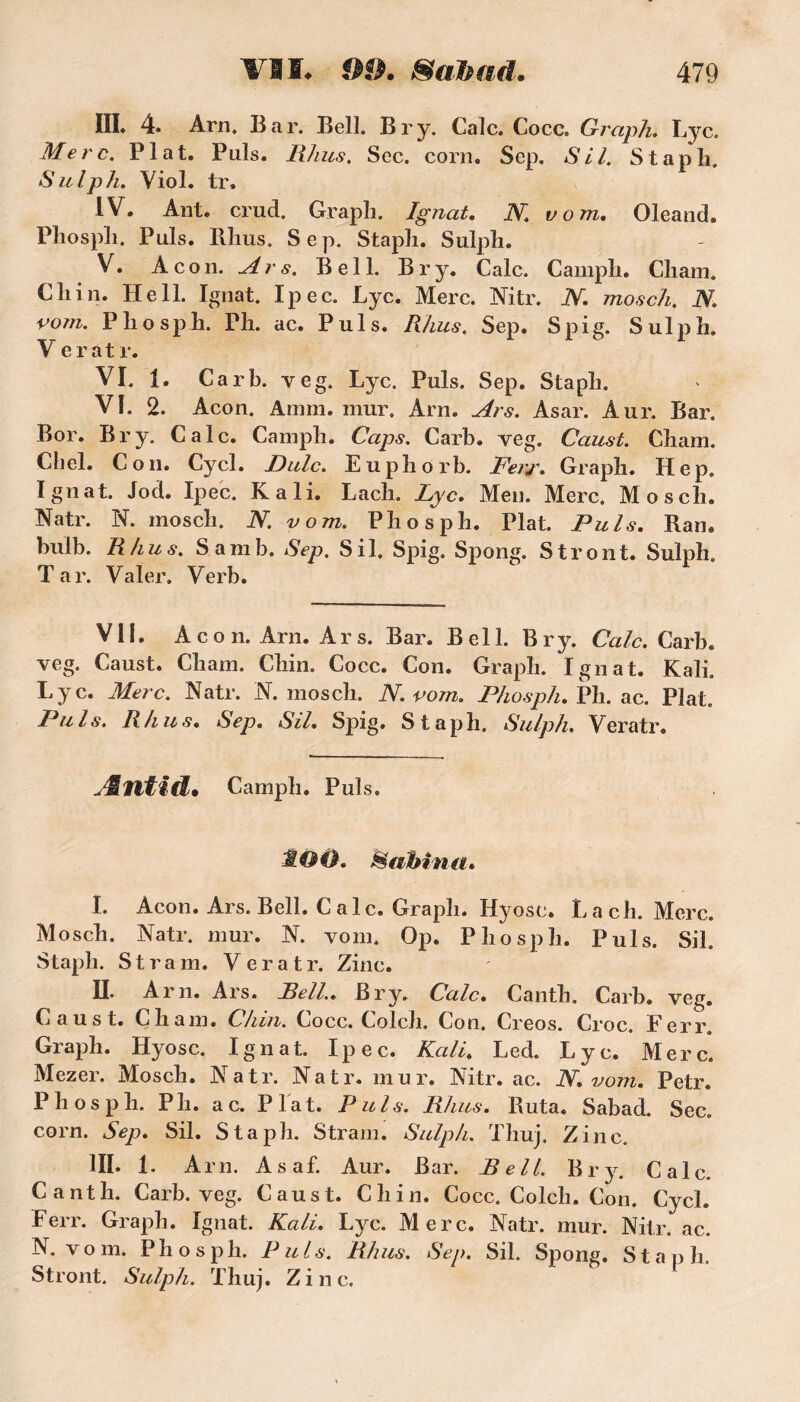 VII. 99. Sabad. 479
III. 4. Arn. Bar. Bell. Bry. Calc. Cocc. Graph. Lyc.
Merc. Plat. Puls. Rhus. Sec. corn. Sep. Sil. Staph.
Sulph. Viol. tr.
IV. Ant. crud. Graph. Ignat. N. vom. Oleand.
Phosph. Puls. Rhus. Sep. Staph. Sulph.
V. Acon. Ars. Bell. Bry. Calc. Camph. Cham.
Chin. Hell. Ignat. Ipec. Lyc. Merc. Nitr. N. mosch. N.
vom. Phosph. Ph. ac. Puls. Rhus. Sep. Spig. Sulph.
Veratr.
VI. 1. Carb. veg. Lyc. Puls. Sep. Staph.
VI. 2. Acon. Amm. mur. Arn. Ars. Asar. Aur. Bar.
Bor. Bry. Calc. Camph. Caps. Carb. veg. Caust. Cham.
Chel. Con. Cycl. Dulc. Euphorb. Ferr. Graph. Hep.
Ignat. Jod. Ipec. Kali. Lach. Lyc. Men. Merc. Mosch.
Natr. N. mosch. N. vom. Phosph. Plat. Puls. Ran.
bulb. Rhus. Samb. Sep. Sil. Spig. Spong. Stront. Sulph.
Tar. Valer. Verb.
VII. Acon. Arn. Ars. Bar. Bell. Bry. Calc. Carb.
veg. Caust. Cham. Chin. Cocc. Con. Graph. Ignat. Kali.
Lyc. Merc. Natr. N. mosch. N. vom. Phosph. Ph. ac. Plat.
Puls. Rhus. Sep. Sil. Spig. Staph. Sulph. Veratr.
Antid. Camph. Puls.
100. Sabina.
I. Acon. Ars. Bell. Calc. Graph. Hyosc. Lach. Merc.
Mosch. Natr. mur. N. vom. Op. Phosph. Puls. Sil.
Staph. Stram. Veratr. Zinc.
II. Arn. Ars. Bell.. Bry. Calc. Canth. Carb. veg.
Caust. Cham. Chin. Cocc. Colch. Con. Creos. Croc. Ferr.
Graph. Hyosc. Ignat. Ipec. Kali. Led. Lyc. Merc.
Mezer. Mosch. Natr. Natr. mur. Nitr. ac. N. vom. Petr.
Phosph. Ph. ac. Plat. Puls. Rhus. Ruta. Sabad. Sec.
corn. Sep. Sil. Staph. Stram. Sulph. Thuj. Zinc.
III. 1. Arn. Asaf. Aur. Bar. Bell. Bry. Calc.
Canth. Carb. veg. Caust. Chin. Cocc. Colch. Con. Cycl.
Ferr. Graph. Ignat. Kali. Lyc. Merc. Natr. mur. Nitr. ac.
N. vom. Phosph. Puls. Rhus. Sep. Sil. Spong. Staph.
Stront. Sulph. Thuj. Zinc.